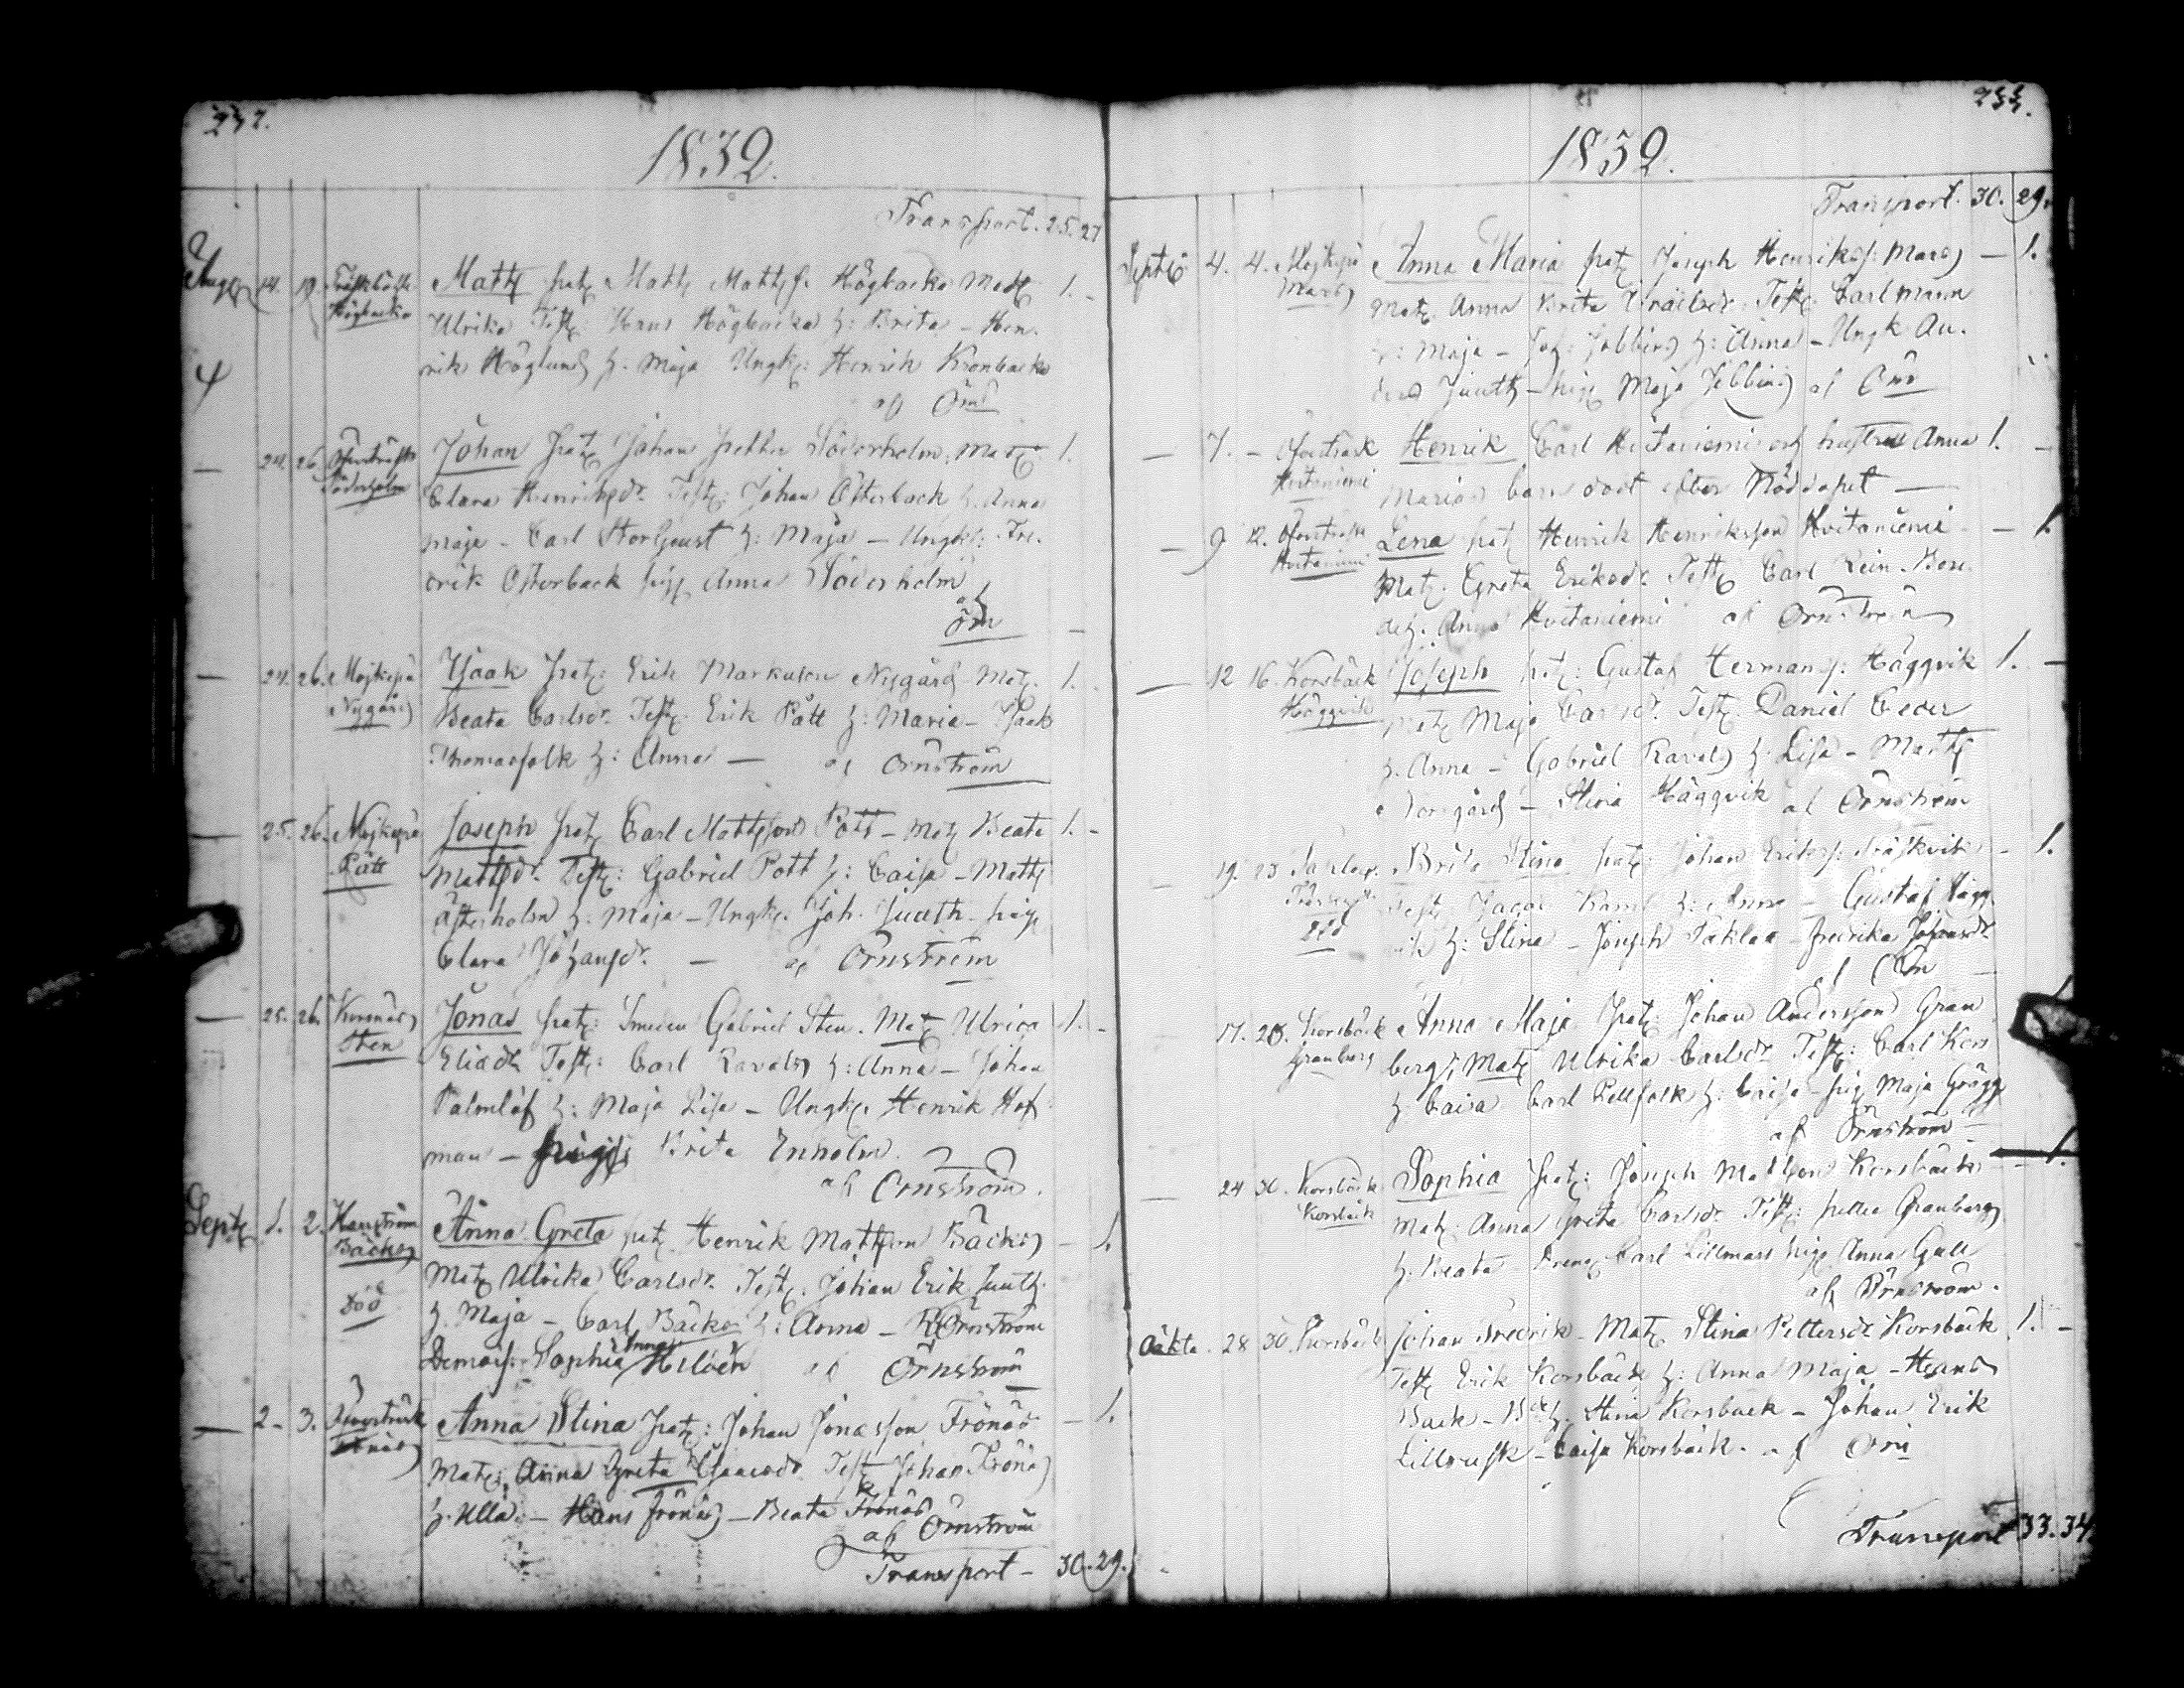 232.
1832.
Transport. 25. 27
Aug 14. 19. Högbacka Matts pat Matts Mattss. Högbacka Mat 1. -
Ulrika Test: Hans Högbacka h: Brita - Hen-
rik Höglund h: Maja Ungk: Henrik Kronbacka
af Örns
— 24. 26. Söderholm Johan pat Johan Petter Söderholm. Mat 1.
Clara Henriksdr. Test: Johan Österback h. Anna
Maja - Carl h: Maja - Ungk: Fre-
drik Österback pig Anna Söderholm
af
Örn —
— 24. 26. Nygård Isaak pat: Erik Markuson Nygård Mat. 1.
Beata Carlsdr. Test: Erik Pått h: Maria - Isaak
Thomasfolk h: Anna — af Örnström
— 25. 26. Pått Joseph pat Carl Mattsson Pått - Mat Beata 1. -
Mattsdr. Test: Gabriel Pott h: Caisa - Matts
Österholm h: Maja - Ungk. Joh. Juuth pig
Clara Johansdr. — af Örnström
— 25. 26. Korsnäs Sten Jonas pat: Smeden Gabriel Sten. Mat Ulrica 1. -
Eliadr Test: Carl Ravals h: Anna - Johan
Palmlöf h: Maja Lisa - Ungk. Henrik Hof-
man - pig Brita Enholm.
af Örnström.
Sept 1. 2. Harrström Bäcks Anna Greta pat Henrik Mattsson Bäcks - 1.
Mat Ulrika Carlsdr. Test. Johan Erik Juuth
död h. Maja - Carl Bäcks h: Anna - Örnström
Demois: Sophia Anna af Örnström
— 2. 3. Frönäs Anna Stina pat: Johan Jonasson Frönäs - 1.
Mat: Anna Greta Isaacsdr Test Johan Frönäs
h. Ulla. - Hans Frönäs - Beata Frönäs
af Örnström
Transport - 30. 29.
233.
1832.
Transport. 30. 29.
Sept 4. 4. Anna Maria pat Joseph Henrikss. Mars - 1.
Mat. Anna Brita Israelsdr. Test. Carl Mann
h: Maja - h: Anna - Ungk An-
ders Juuth - pig Maja af Örn
— 7. - Henrik Carl Hvitaniemi och hustru Anna 1. -
Marias barn dödt efter Nöddopet —
— 9 12. Lena pat Henrik Henriksson Hvitaniemi - 1.
Mat. Greta Eriksdr Test Carl Rein-
Anna Hvitaniemi af Örnström
— 12 16. Korsbäck Häggvik Joseph pat: Gustaf Hermans: Häggvik 1. -
Mat Maja Carlsdr. Test Daniel Ceder
h. Anna - Gabriel Ravals h. Lisa - Matts
Norrgård - Stina Häggvik af Örnström
— 19. 23 Brita Stina pat: Johan Erikss: Träskvik - 1.
död Test Jacob h: Anna - Gustaf Hägg-
vik h: Stina - Joseph Taklax - Fredrika Johansdr
af Örn —
17. 23. Korsbäck Granberg Anna Maja pat: Johan Andersson Gran-
berg, Mat Ulrika Carlsdr Test: Carl Kors
h. Caisa Carl Pellfolk h: Caisa - pig Maja Grägg
af Örnström
— 24 30. Korsbäck Korsbäck Sophia pat: Joseph Mattson Korsbäck - 1.
Mat: Anna Greta Carlsdr Test: Petter Granberg
h. Beata - Dreng Carl Lillmars pig Anna Gull
af Örnström.
Oäkta. 28 30. Korsbäck Johan Fredrik - Mat Stina Pettersdr Korsbäck 1. -
Test Erik Korsbäck h: Anna Maja - Hans
Back - h. Stina Korsbäck - Johan Erik
Caisa Korsbäck. af Örn
Transport 33. 34